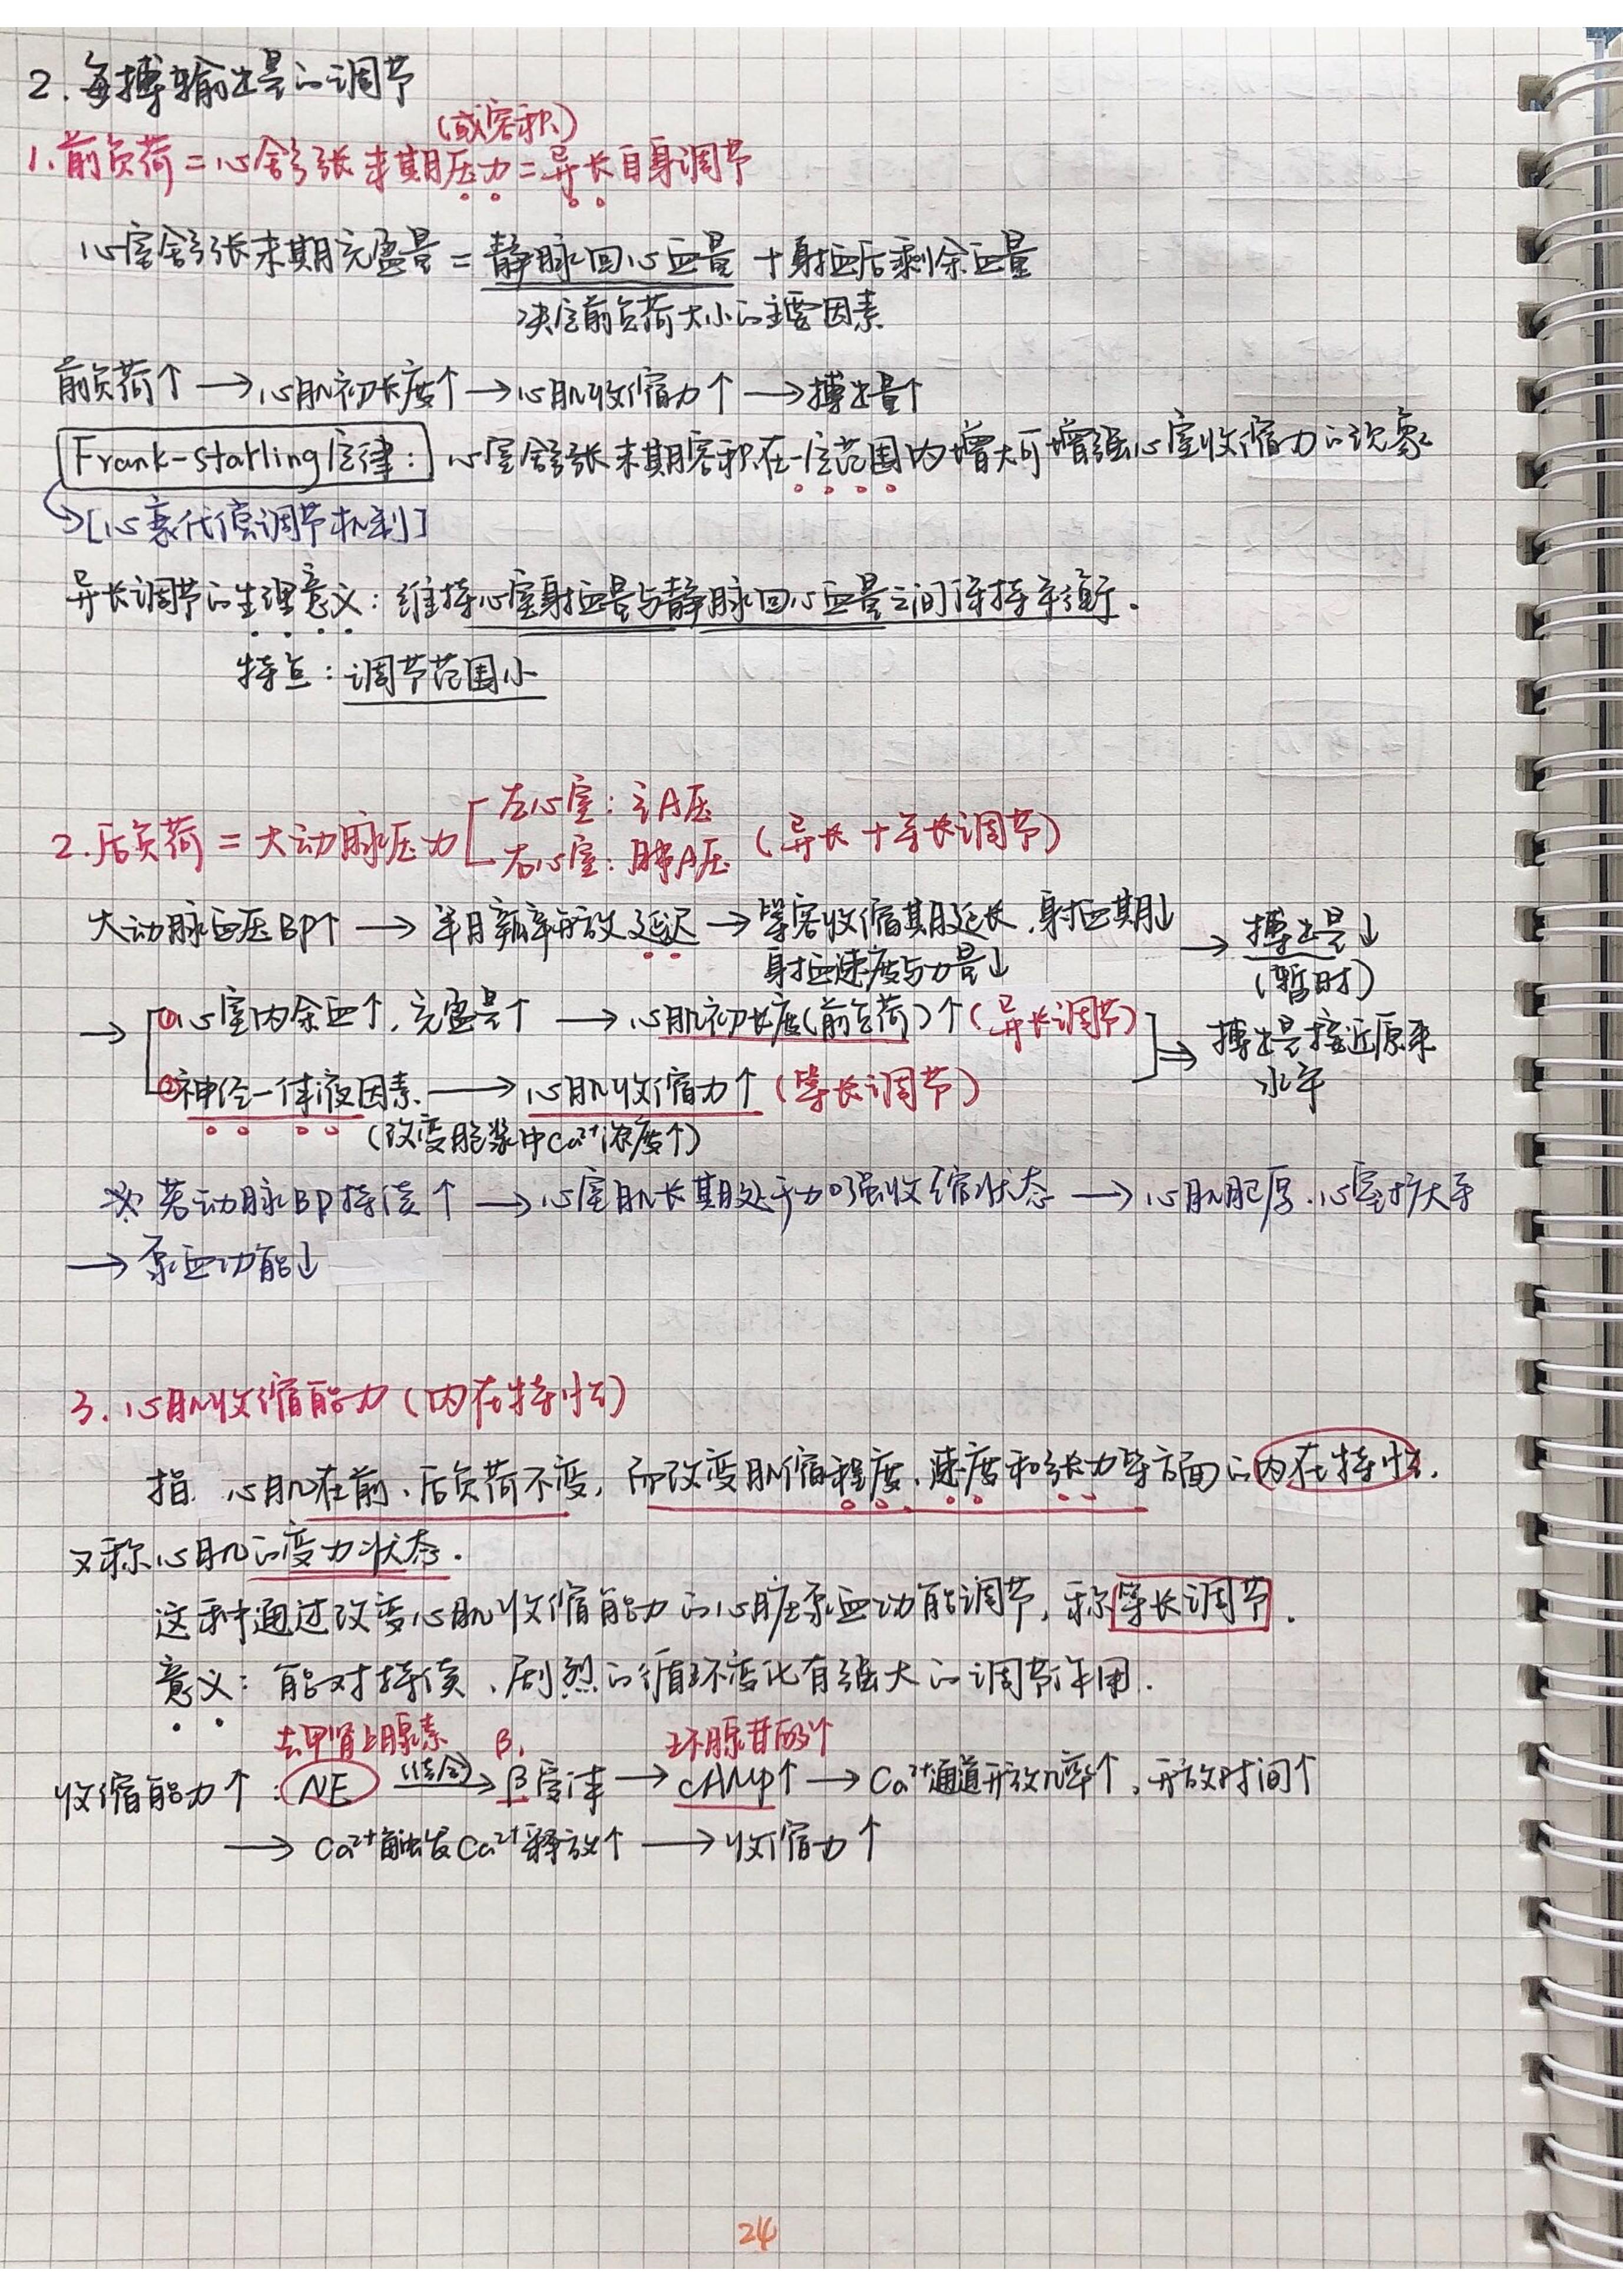 2. 每搏输出量的调节
(或容积)
1. 前负荷 = 心舒张末期压力 = 异长自身调节
心室舒张末期充盈量 = 静脉回心血量 + 射血后剩余血量
决定前负荷大小的主要因素
前负荷↑ → 心肌初长度↑ → 心肌收缩力↑ → 搏出量↑
Frank-starling定律: 心室舒张末期容积在一定范围内增大可增强心室收缩力的现象
↳[心衰代偿调节机制]
异长调节的生理意义: 维持心室射血量与静脉回心血量之间保持平衡.
特点: 调节范围小
左心室: 主A压
2. 后负荷 = 大动脉压力 (异长 + 等长调节)
右心室: 肺A压
大动脉血压BP↑ → 半月瓣开放延迟 → 等容收缩期延长, 射血期↓ → 搏出量↓
射血速度与力量↓ (暂时)
→ ①心室内余血↑, 充盈量↑ → 心肌初长度(前负荷)↑ (异长调节) ⇒ 搏出量接近原来
②神经—体液因素 → 心肌收缩力↑ (等长调节) 水平
(改变胞浆中Ca²⁺浓度↑)
※ 若动脉BP持续↑ → 心室肌长期处于加强收缩状态 → 心肌肥厚. 心室扩大等
→ 泵血功能↓
3. 心肌收缩能力 (内在特性)
指 心肌在前、后负荷不变, 而改变肌缩程度、速度和张力等方面的内在特性.
又称心肌的变力状态.
这种通过改变心肌收缩能力的心脏泵血功能调节, 称等长调节.
意义: 能对持续、剧烈的循环变化有强大的调节作用.
去甲肾上腺素 β₁ 环腺苷酸↑
收缩能力↑: NE (结合)→ β受体 → cAMP↑ → Ca²⁺通道开放几率↑, 开放时间↑
→ Ca²⁺触发Ca²⁺释放↑ → 收缩力↑
24